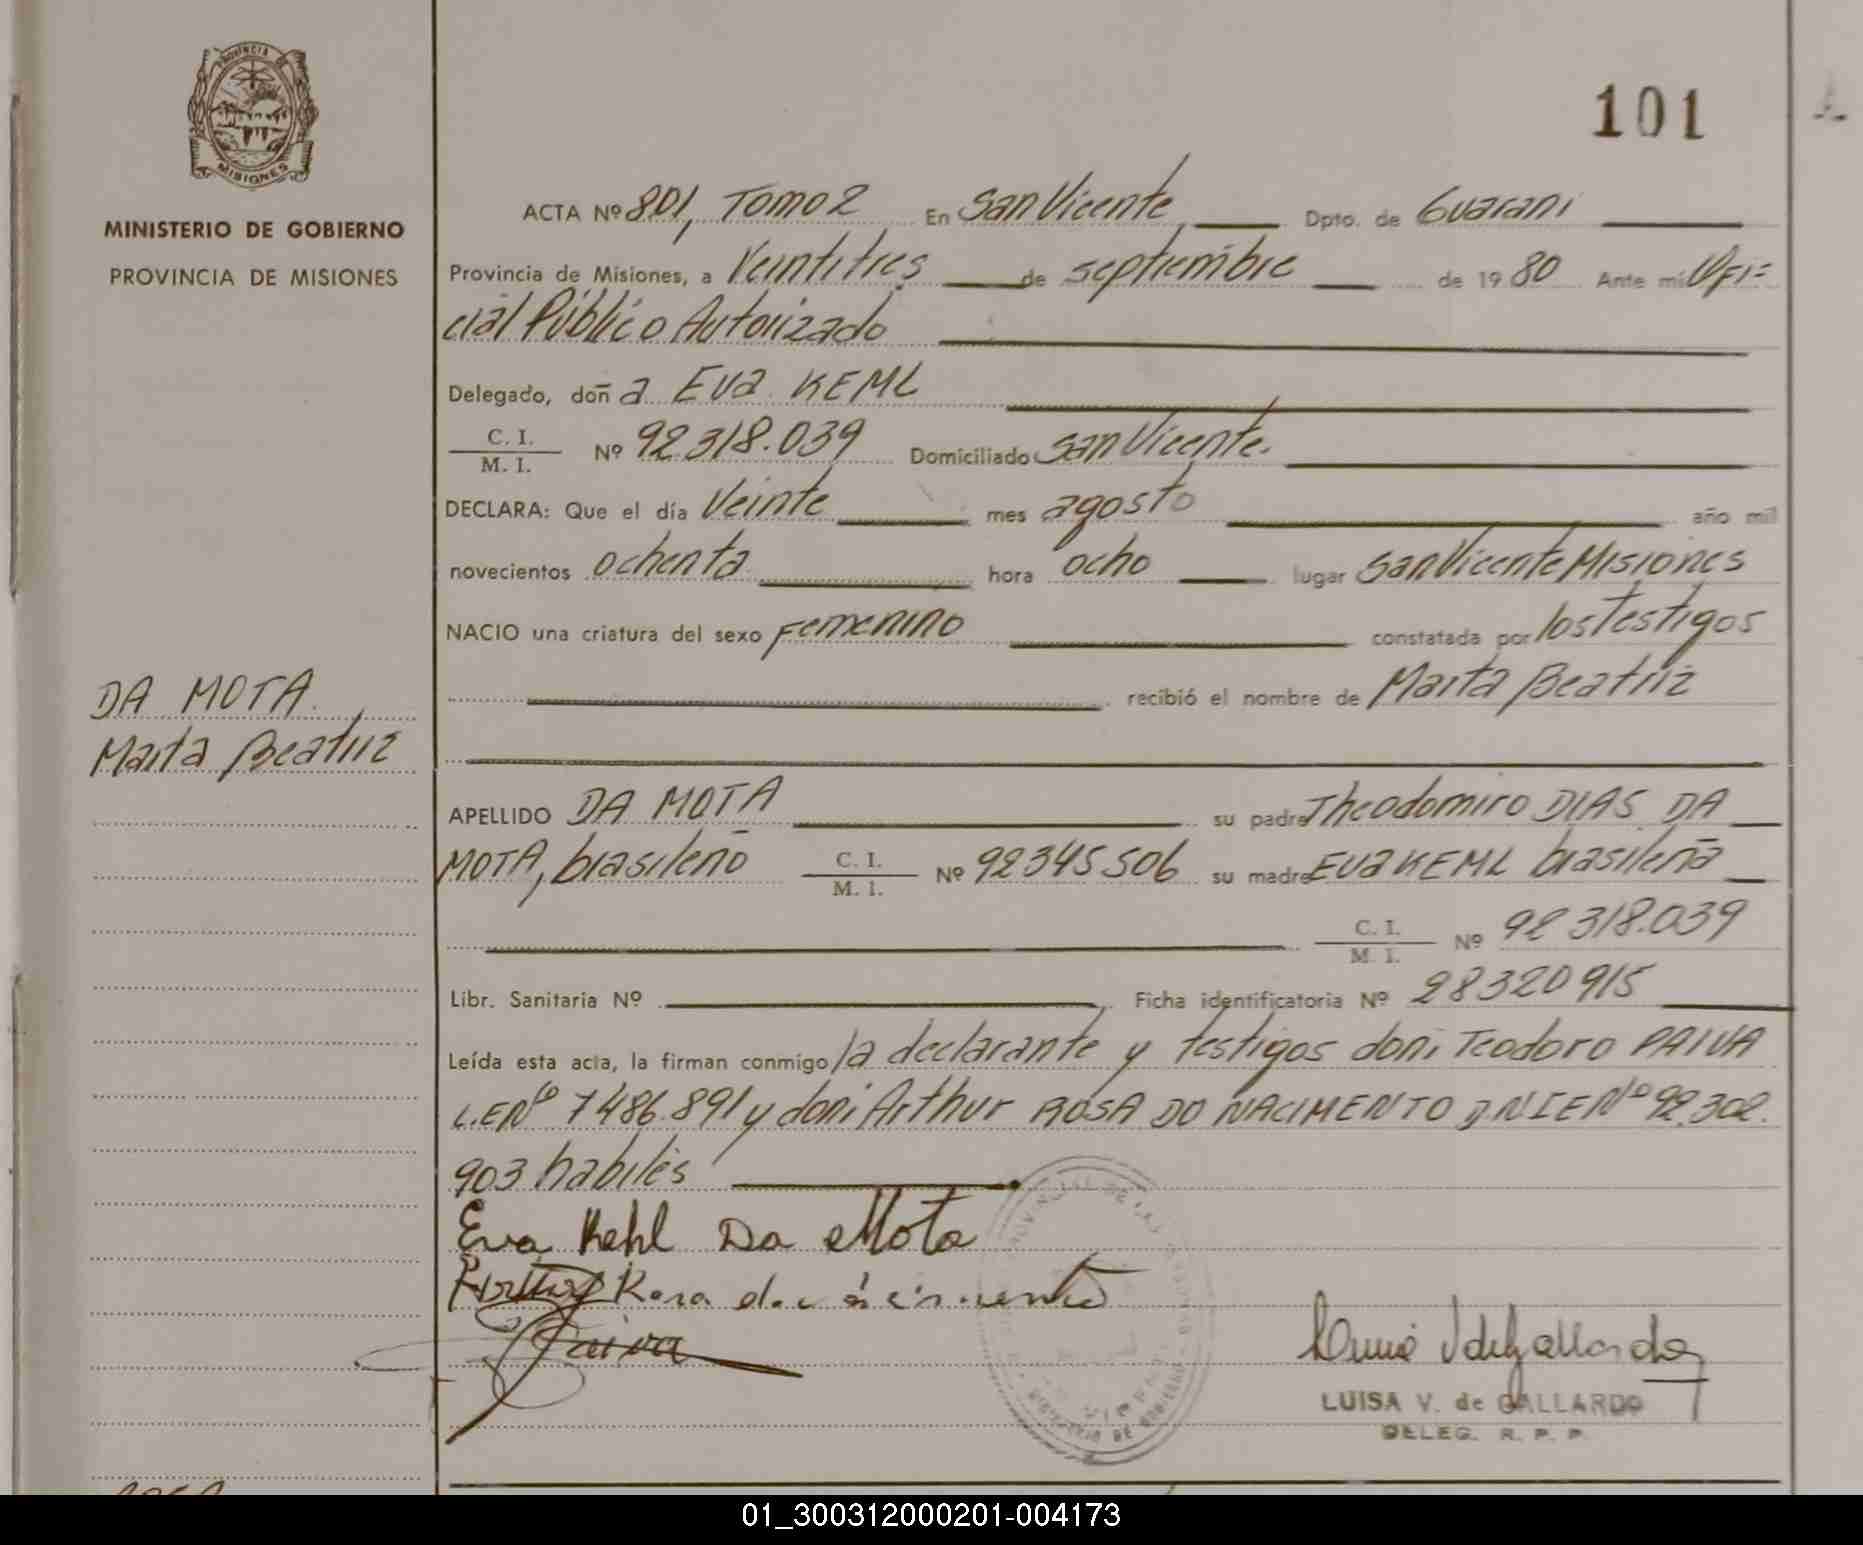 PROVINCIA DE
MISIONES
MINISTERIO DE GOBIERNO
PROVINCIA DE MISIONES
101
ACTA Nº 801, Tomo 2 En San Vicente Dpto. de Guarani
Provincia de Misiones, a Veintitres de septiembre de 19 80 Ante mí Ofi=
cial Público Autorizado
Delegado, doñ a Eva KEML
C. I.
M. I.
Nº 92.318.039 Domiciliado San Vicente.
DECLARA: Que el día Veinte mes agosto año mil
novecientos ochenta hora ocho lugar San Vicente Misiones
NACIO una criatura del sexo Femenino constatada por los Testigos
recibió el nombre de Marta Beatriz
DA MOTA.
Marta Beatriz
APELLIDO DA MOTA su padre Theodomiro DIAS DA
MOTA, brasileño C. I. M. I. Nº 92345506 su madre EVA KEML brasileña
C. I. M. I. Nº 92 318.039
Libr. Sanitaria Nº Ficha identificatoria Nº 28320915
Leída esta acta, la firman conmigo la declarante y testigos don: Teodoro PAIVA
L.E Nº 7486.891 y don: Arthur ROSA DO NACIMENTO D.N.I E Nº 92.302.
903 habiles
Eva Kehl Da Mota
Rosa
Paiva
LUISA V. de GALLARDO
DELEG. R. P. P.
MINISTERIO DE GOBIERNO
01_300312000201-004173